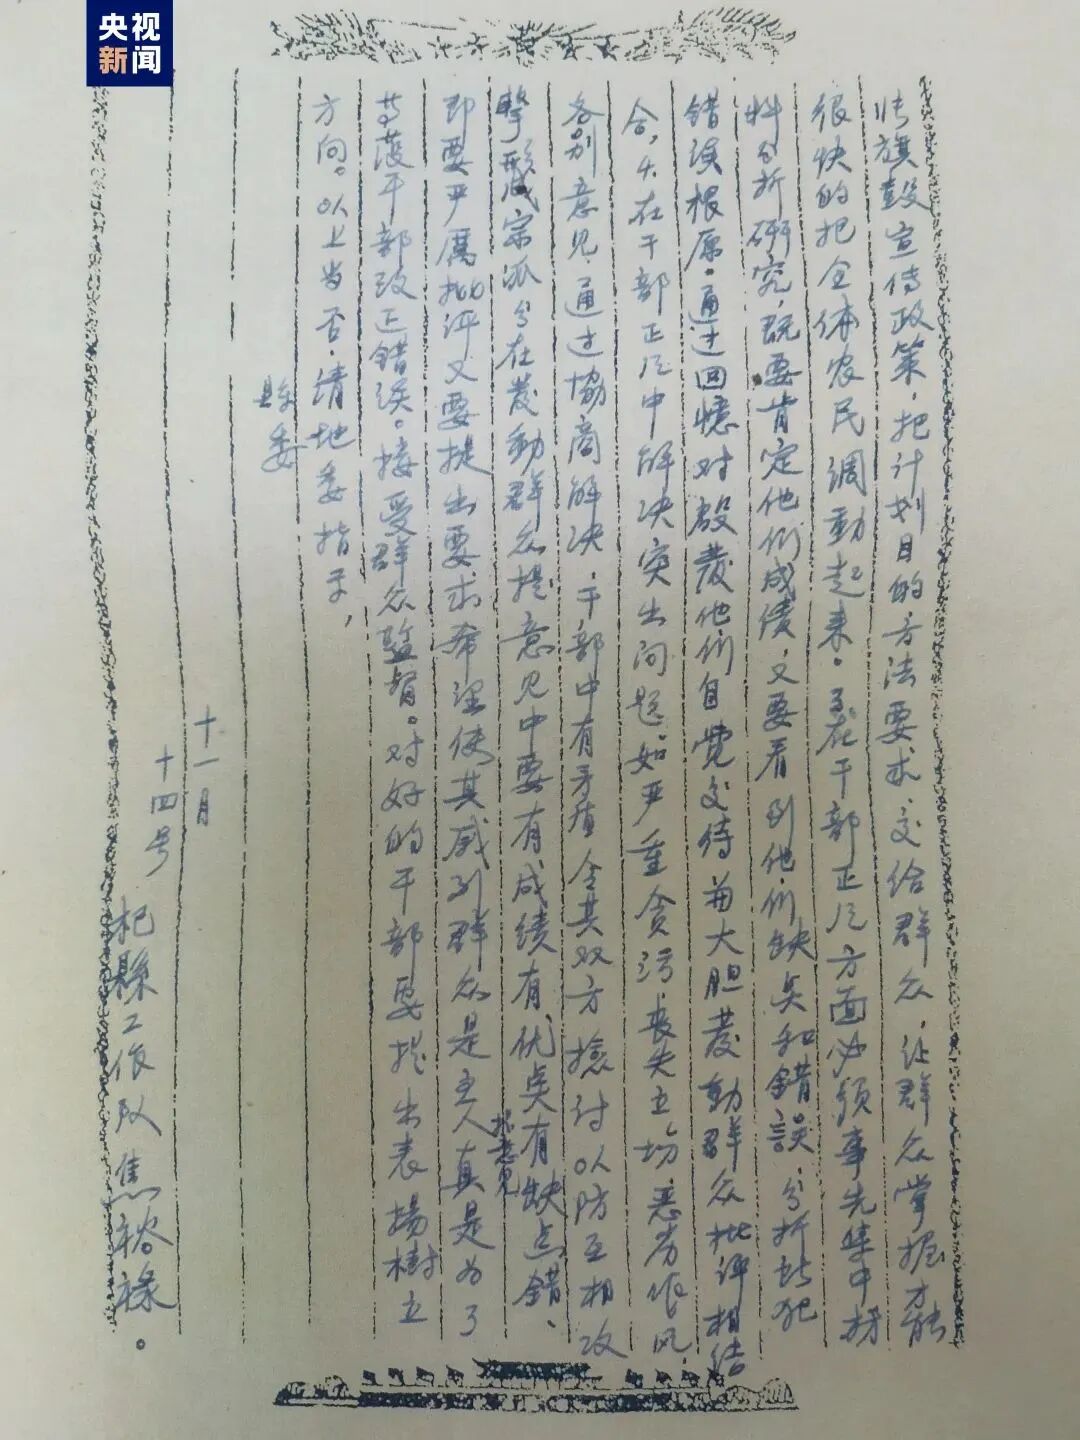 央视
新闻
旗鼓宣传政策，把计划目的方法要求交给群众，让群众掌握才能
很快的把全体农民调動起来。在干部正风方面必须事先集中材
料分析研究，既要肯定他们成绩，又要看到他们缺点和錯誤，分析所犯
錯误根原，通过回憶对啟發他们自觉交待并大胆發動群众批评相结
合，在干部正风中解决突出问题如严重贪污、丧失立场、恶劣作风，
各别意见，通过協商解决，干部中有矛盾令其双方檢讨以防互相攻
擊形成宗派，在發動群众提意见中要有成绩有优点有缺点錯、
提意见
即要严厲批评又要提出要求希望使其感到群众是主人真是为了
护干部改正错误。接受群众監督。对好的干部要提出表揚樹立
方向。以上当否，请地委指示，
县委
十一月
十四号
杞縣工作队焦裕禄。